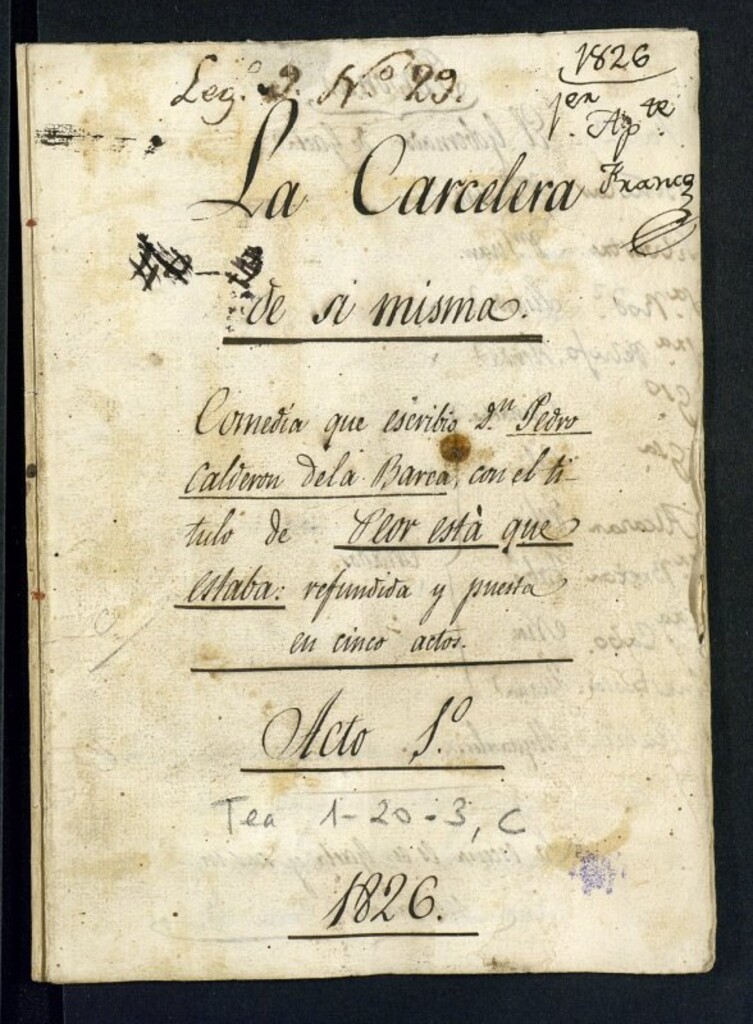 Leg.º 2. Nº 29.
1826
1en Ap.te
Franco
La Carcelera
de si misma.
Comedia que escribio D.n Pedro
Calderon dela Barca, con el ti-
tulo de Peor està que
estaba: refundida y puesta
en cinco actos.
Acto 1.º
Tea 1-20-3, C
1826.